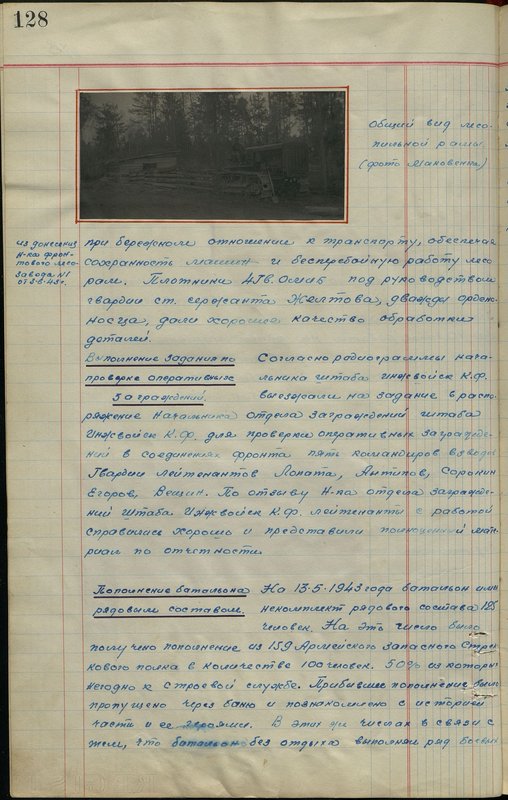 128
Общий вид лесо-
пильной рамы
(фото Маковенко)
из донесения
Н-ка фрон-
тового лесо-
завода №1
от 5-6-43г.
при бережном отношении к транспорту, обеспечая
сохранность машин и бесперебойную работу лесо
рам. Плотники 4 Гв. ОМИБ под руководством
гвардии ст. сержанта Желтова, дважды орден-
носца, дали хорошее качество обработки
деталей.
Выполнение задания по
проверке оперативных
заграждений.
Согласно радиограммы нача-
льника штаба инжвойск К.Ф.
выезжали на задание в распо-
ряжение Начальника отдела заграждений штаба
Инжвойск К.Ф. для проверки оперативных загражде-
ний в соединениях фронта пять командиров взводов
Гвардии лейтенантов Лопата, Антипов, Сорокин
Егоров, Вешин. По отзыву Н-ка отдела загражде-
ний Штаба Инжвойск К.Ф. лейтенанты с работой
справились хорошо и представили полноценный мат-
риал по отчетности.
Пополнение батальона
рядовым составом.
На 13.5.1943 года батальон имел
некомплект рядового состава 125
человек. На это число было
получено пополнение из 159 Армейского Запасного Стрел
кового полка в количестве 100 человек. 50% из которых
негодно к строевой службе. Прибывшее пополнение было
пропущено через баню и познакомлено с историей
части и ее героями. В этих же числах в связи с
тем, что батальон без отдыха выполнял ряд боевых